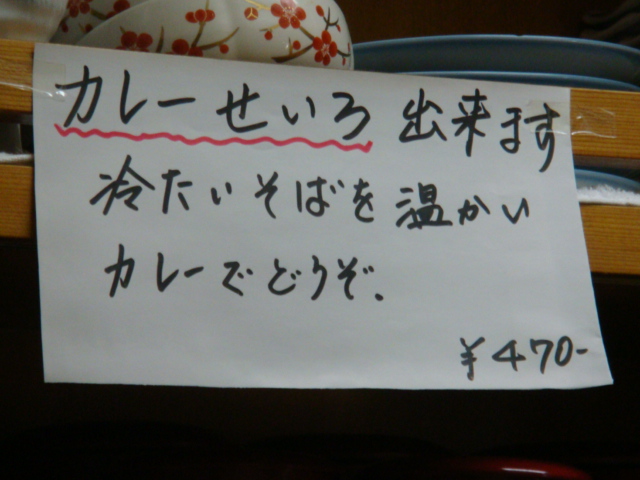 カレーせいろ 出来ます
冷たいそばを温かい
カレーでどうぞ.
¥470-